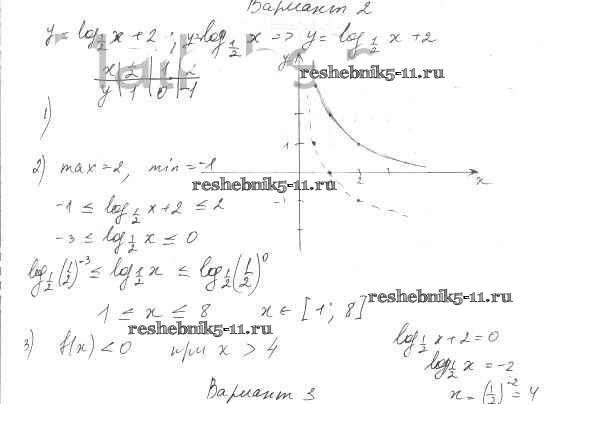 Вариант 2
y = log_{1/2} x + 2 ; y = log_{1/2} x => y = log_{1/2} x + 2
x | 1/2 | 1 | 2
y | 1 | 0 | -1
y
reshebnik5-11.ru
1)
1
2
-1
x
2) max = 2, min = -1
reshebnik5-11.ru
-1 ≤ log_{1/2} x + 2 ≤ 2
-3 ≤ log_{1/2} x ≤ 0
log_{1/2} (1/2)^{-3} ≤ log_{1/2} x ≤ log_{1/2} (1/2)^0
1 ≤ x ≤ 8 x ∈ [1; 8]
reshebnik5-11.ru
reshebnik5-11.ru
3) f(x) < 0 при x > 4
log_{1/2} x + 2 = 0
log_{1/2} x = -2
x = (1/2)^{-2} = 4
Вариант 3